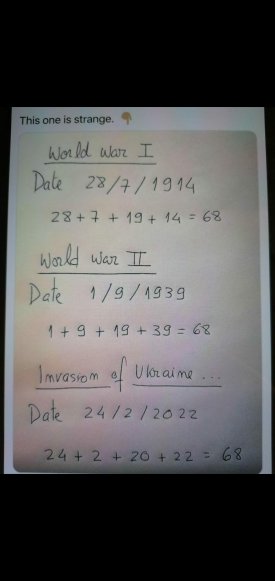 This one is strange. 👇
World war I
Date 28/7/1914
28 + 7 + 19 + 14 = 68
World war II
Date 1/9/1939
1 + 9 + 19 + 39 = 68
Invasion of Ukraine ...
Date 24/2/2022
24 + 2 + 20 + 22 = 68